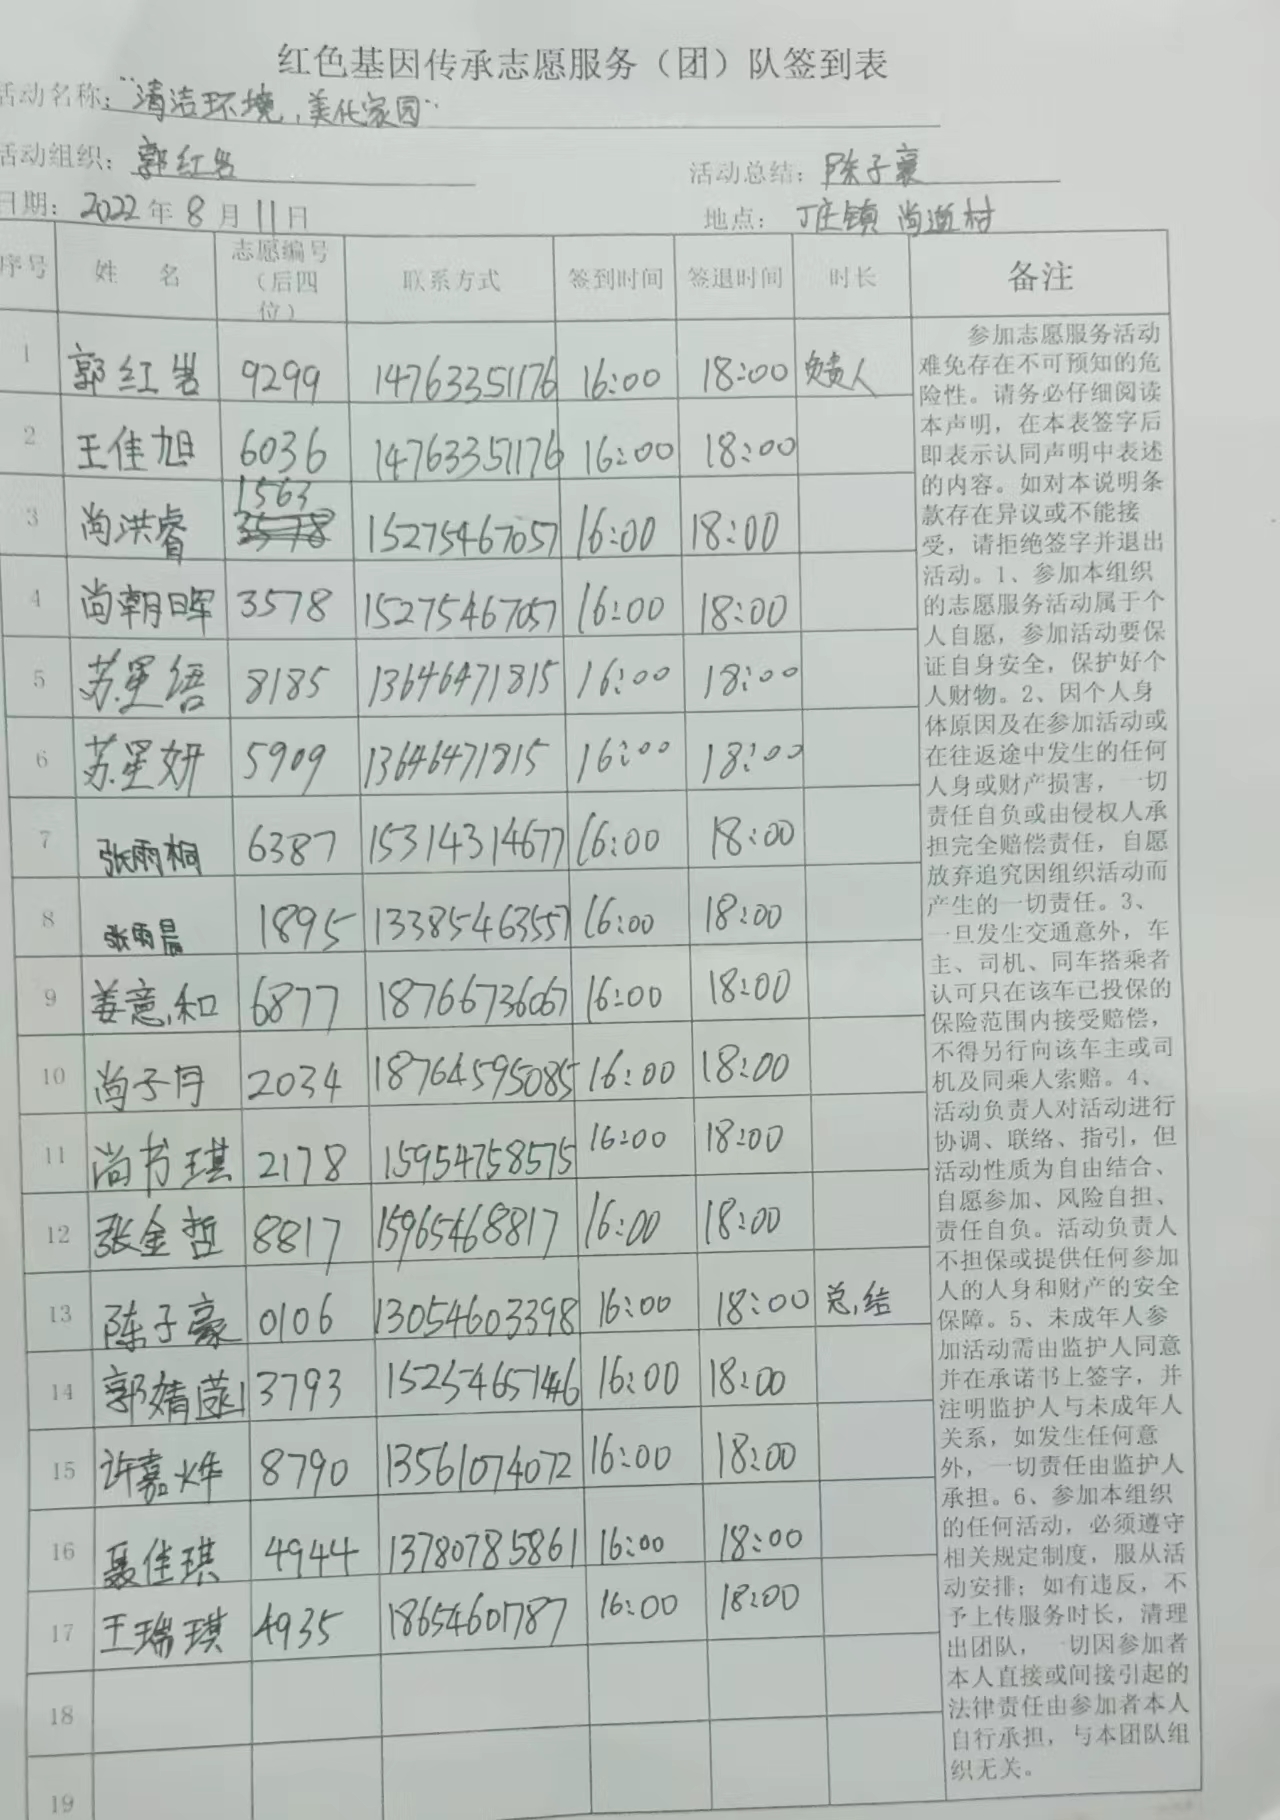 红色基因传承志愿服务（团）队签到表
活动名称："清洁环境，美化家园"
活动组织：郭红岩 活动总结：陈子豪
日期：2022年8月11日 地点：丁庄镇 尚道村
序号 姓 名 志愿编号（后四位） 联系方式 签到时间 签退时间 时长 备注
1 郭红岩 9299 14763351176 16:00 18:00 负责人
2 王佳旭 6036 14763351176 16:00 18:00
3 尚洪睿 1563 15275467057 16:00 18:00
4 尚朝晖 3578 15275467057 16:00 18:00
5 苏星语 8185 13646471815 16:00 18:00
6 苏星妍 5909 13646471815 16:00 18:00
7 张雨桐 6387 15314314677 16:00 18:00
8 张雨晨 1895 13385463557 16:00 18:00
9 姜意和 6877 18766736067 16:00 18:00
10 尚子月 2034 18764595085 16:00 18:00
11 尚书琪 2178 15954758575 16:00 18:00
12 张金哲 8817 15965468817 16:00 18:00
13 陈子豪 0106 13054603398 16:00 18:00 总结
14 郭婧菡 3793 15254657146 16:00 18:00
15 许嘉烨 8790 13561074072 16:00 18:00
16 聂佳琪 4944 13780785861 16:00 18:00
17 王瑞琪 4935 18654601787 16:00 18:00
18
19
参加志愿服务活动
难免存在不可预知的危
险性。请务必仔细阅读
本声明，在本表签字后
即表示认同声明中表述
的内容。如对本说明条
款存在异议或不能接
受，请拒绝签字并退出
活动。1、参加本组织
的志愿服务活动属于个
人自愿，参加活动要保
证自身安全，保护好个
人财物。2、因个人身
体原因及在参加活动或
在往返途中发生的任何
人身或财产损害，一切
责任自负或由侵权人承
担完全赔偿责任，自愿
放弃追究因组织活动而
产生的一切责任。3、
一旦发生交通意外，车
主、司机、同车搭乘者
认可只在该车已投保的
保险范围内接受赔偿，
不得另行向该车主或司
机及同乘人索赔。4、
活动负责人对活动进行
协调、联络、指引，但
活动性质为自由结合、
自愿参加、风险自担、
责任自负。活动负责人
不担保或提供任何参加
人的人身和财产的安全
保障。5、未成年人参
加活动需由监护人同意
并在承诺书上签字，并
注明监护人与未成年人
关系，如发生任何意
外，一切责任由监护人
承担。6、参加本组织
的任何活动，必须遵守
相关规定制度，服从活
动安排；如有违反，不
予上传服务时长，清理
出团队，一切因参加者
本人直接或间接引起的
法律责任由参加者本人
自行承担，与本团队组
织无关。